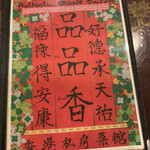 Authentic Chinese Cuisine
好德承天祐
品品香
福祿得安康
香港私房菜館